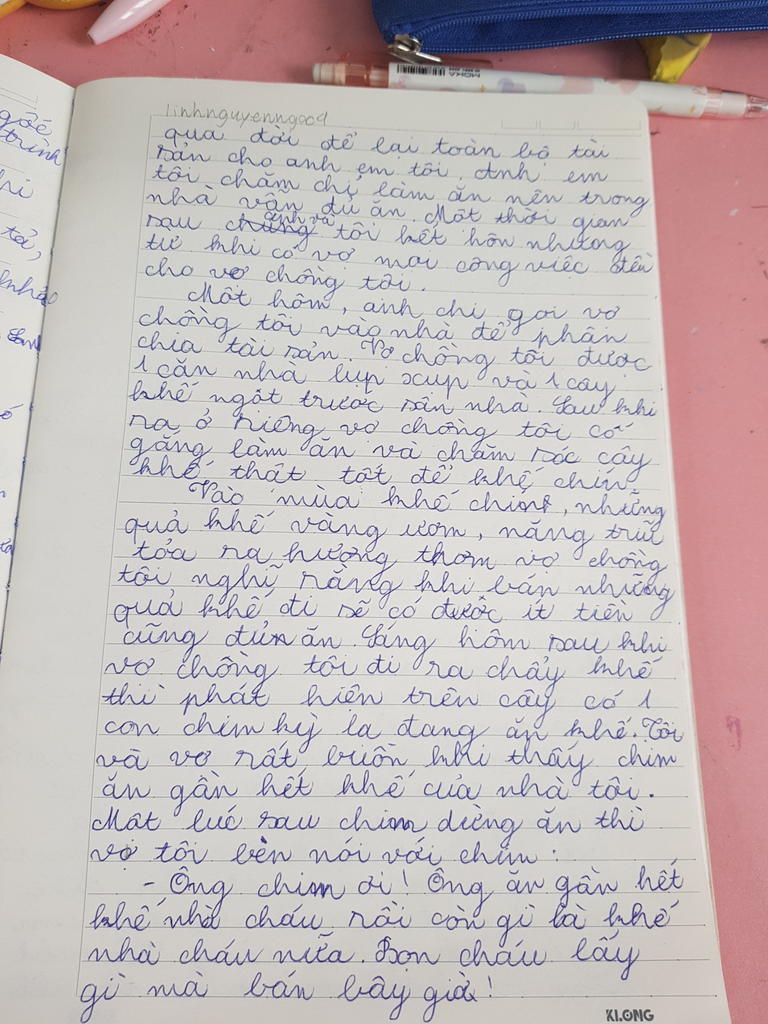 linhnguyenng009
qua đời để lại toàn bộ tài
sản cho anh em tôi. Anh em
tôi chăm chỉ làm ăn nên trong
nhà vẫn đủ ăn. Một thời gian
sau chúng anh và tôi kết hôn nhưng
từ khi có vợ mọi công việc đều
cho vợ chồng tôi.
Một hôm, anh chị gọi vợ
chồng tôi vào nhà để phân
chia tài sản. Vợ chồng tôi được
1 căn nhà lụp xụp và 1 cây
khế ngọt trước sân nhà. Sau khi
ra ở riêng vợ chồng tôi cố
gắng làm ăn và chăm sóc cây
khế thật tốt để khế chín.
Vào mùa khế chín, những
quả khế vàng ươm, nặng trĩu
tỏa ra hương thơm vợ chồng
tôi nghĩ rằng khi bán những
quả khế đi sẽ có được ít tiền
cũng đủ ăn. Sáng hôm sau khi
vợ chồng tôi đi ra chẩy khế
thì phát hiện trên cây có 1
con chim kỳ lạ đang ăn khế. Tôi
và vợ rất buồn khi thấy chim
ăn gần hết khế của nhà tôi.
Một lúc sau chim dừng ăn thì
vợ tôi bèn nói với chim:
- Ông chim ơi! Ông ăn gần hết
khế nhà cháu rồi còn gì là khế
nhà cháu nữa. Bọn cháu lấy
gì mà bán bây giờ!
KLONG
gốc
trình
tả,
MOKA